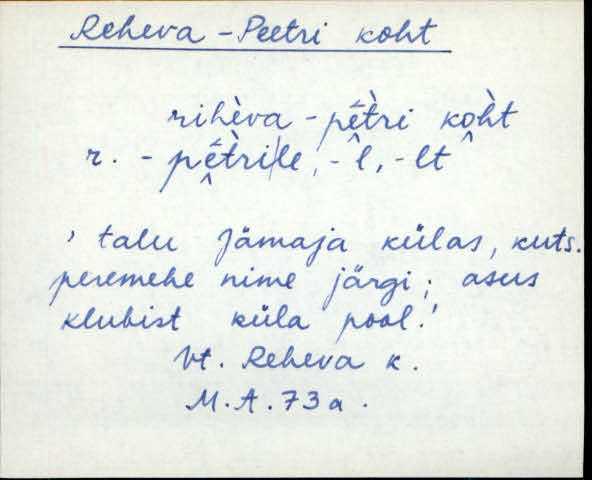 Reheva-Peetri koht
rihèva-pḙ̄̀tri ko̭h̀t
r. -pḙ̄̀tri|le, -̭l, -lt
, talu Jämaja külas, kuts.
peremehe nime järgi; asus
klubist küla pool.'
Vt. Reheva k.
M.A.73a.